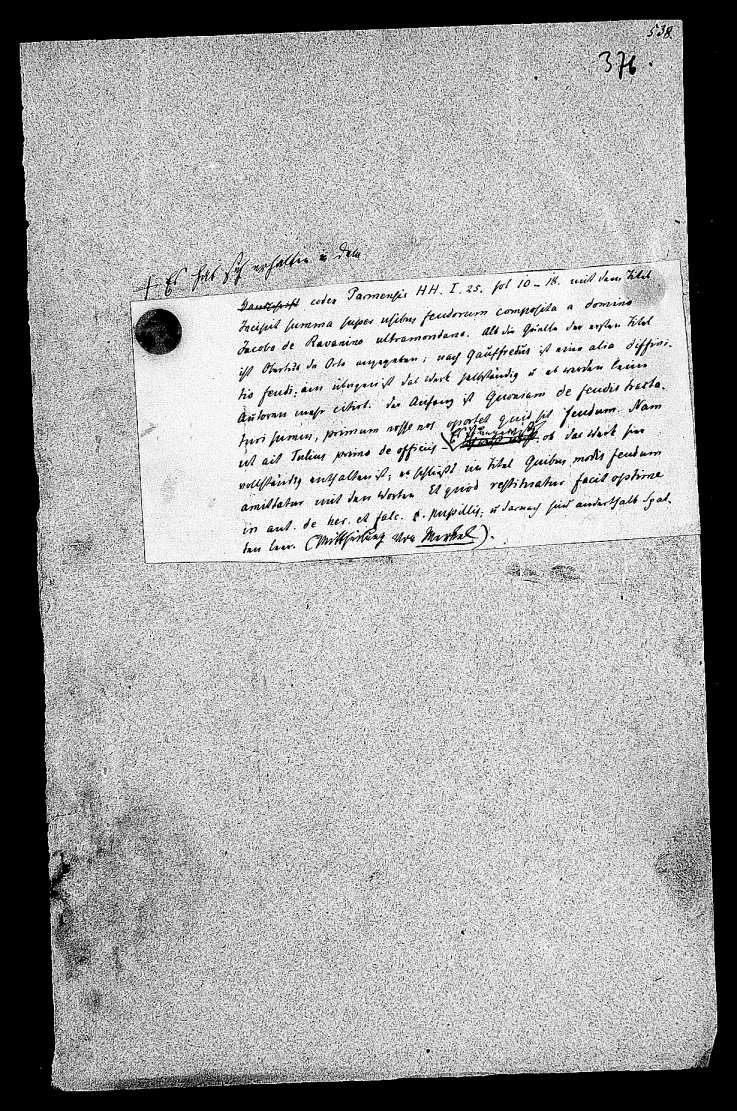 538.
376.
+ Es hat sich erhalten in dem
Handschrift codex Parmensis HH. I. 25. fol 10–18. mit dem Titel
Incipit summa super usibus feudorum composita a domino
Jacobo de Ravanino ultramontano. Als die Quelle der ersten Titel
ist Obertus de Orto angegeben; nach Gauffredus ist eine alia diffini-
tio feudi; im übrigen ist das Werk selbständig u. es werden keine
Autoren mehr citirt. der Anfang ist Quoniam de feudis tracta-
turi sumus, primum nosse nos oportet quid sit feudum. Nam
ut ait Tulius primo de officiis ob das Werk hier
vollständig enthalten ist; es schließt im Titel Quibus modis feudum
amittatur mit den Worten Et quod restituatur facit optime
in aut. de her. et falc. c. pupillis; u. darnach sind anderthalb Spal-
ten leer. (Mittheilung von Merkel).